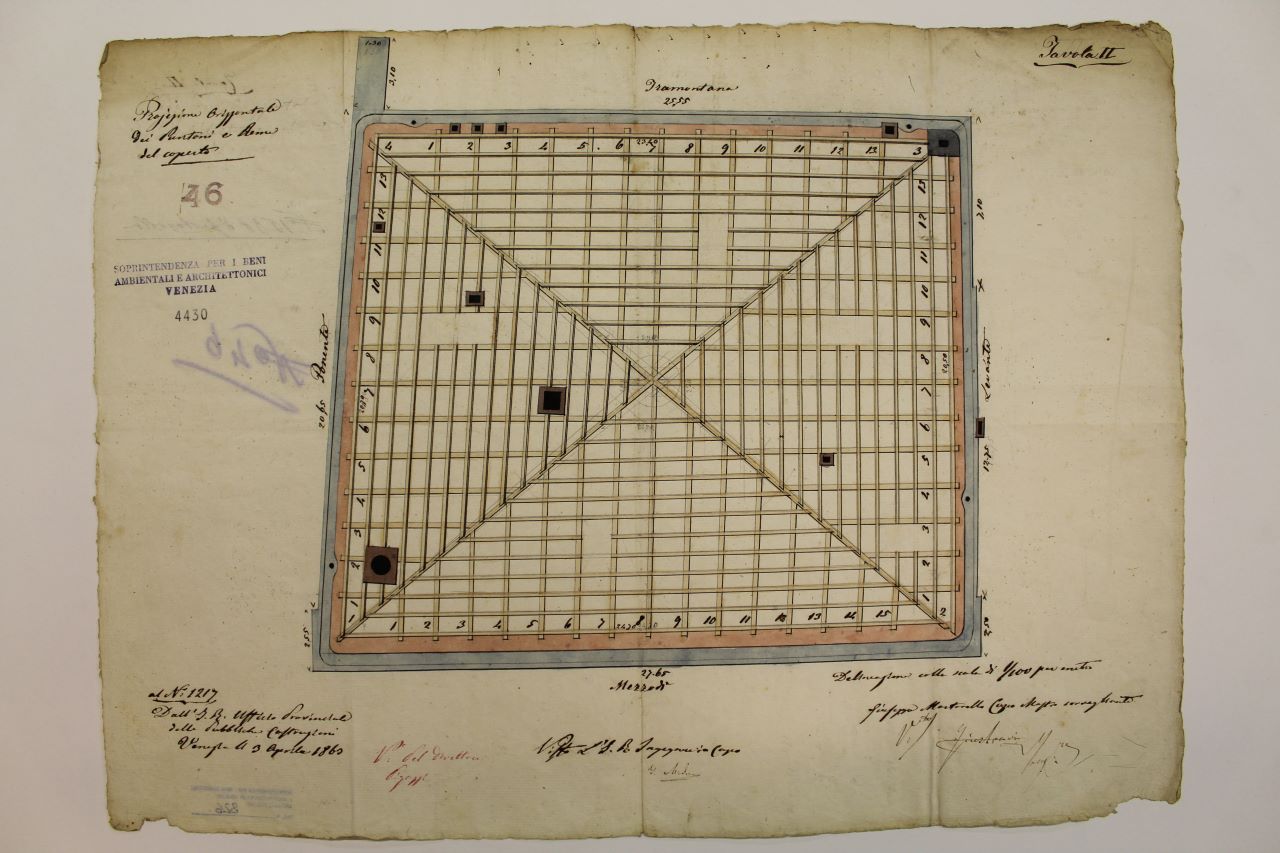 Tavola II
Projezione Orizzontale
dei Puntoni e Reme
del coperto
46
SOPRINTENDENZA PER I BENI
AMBIENTALI E ARCHITETTONICI
VENEZIA
4430
1.30
3,10
Tramontana
25,55
4 1 2 3 4 5 6 7 8 9 10 11 12 13 3
23,40
13 12 11 10 9 8 7 6 5 4 3 2 1
13 12 11 10 9 8 7 6 5 3 2 1
Ponente
20,95
7,10
Levante
20,50
12,75
2,55
2,50
1 2 3 4 5 6 7 8 9 10 11 12 13 14 15 2
27.65
Mezzodì
Delineazione colla scala di 1/100 per metro
al Nº 1217
Dall' I. R. Ufficio Provinciale
delle Pubbliche Costruzioni
Venezia li 3 Aprile 1863
Vº Del Direttore
Visto L' I. R. Ingegnere in Capo
Giuseppe Martorello Capo Mastro
826